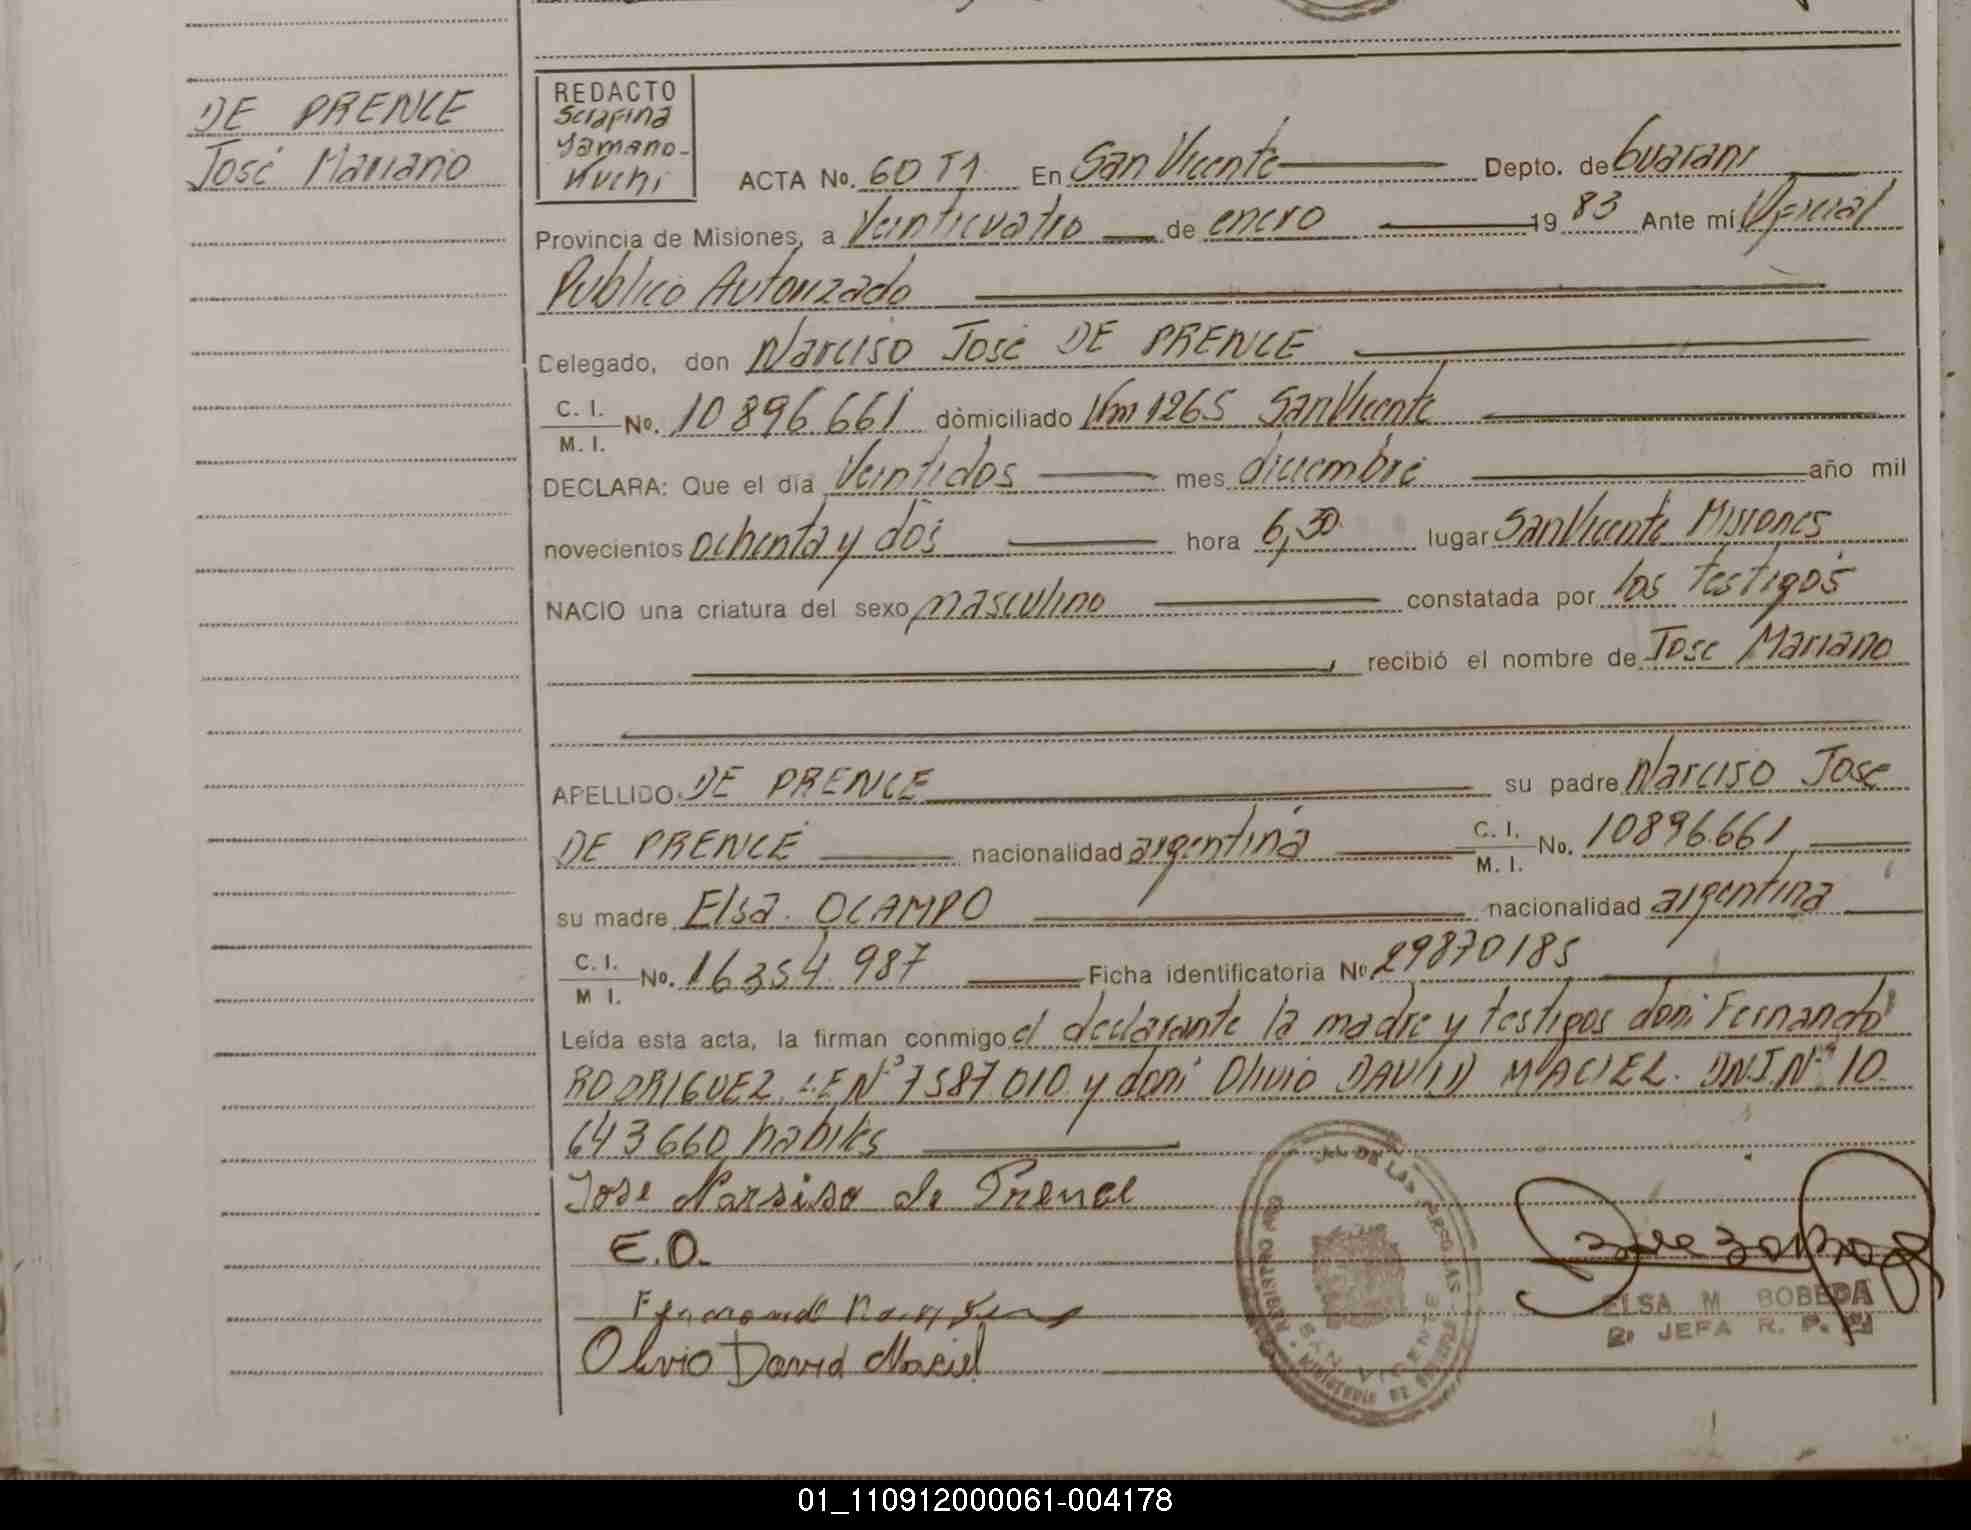 DE PRENCE
José Mariano
REDACTO
Serafina
Yamano-
Kuchi
ACTA No. 60 T1 En San Vicente Depto. de Guarani
Provincia de Misiones, a Veinticuatro de enero 19 83 Ante mi Oficial
Publico Autorizado
Celegado, don Narciso José DE PRENCE
C. I.
M. I. No. 10896.661 domiciliado Km 1265 San Vicente
DECLARA: Que el día Veintidos mes diciembre año mil
novecientos ochenta y dos hora 6,30 lugar San Vicente Misiones
NACIO una criatura del sexo masculino constatada por los testigos
, recibió el nombre de José Mariano
APELLIDO DE PRENCE su padre Narciso José
DE PRENCE nacionalidad argentina C. I.
M. I. No. 10896.661
su madre Elsa OCAMPO nacionalidad argentina
C. I.
M I. No. 16.354.987 Ficha identificatoria No 29870185
Leída esta acta, la firman conmigo el declarante la madre y testigos don: Fernando
RODRIGUEZ L.E Nº 7587.010 y don: Olivio DAVID MACIEL. DNI.Nº 10.
643660 habiles
Jose Narsiso de Prence
E.O.
Olivio David Maciel
SAN VICENTE
ELSA M BOBEDA
JEFA R. P.
01_110912000061-004178